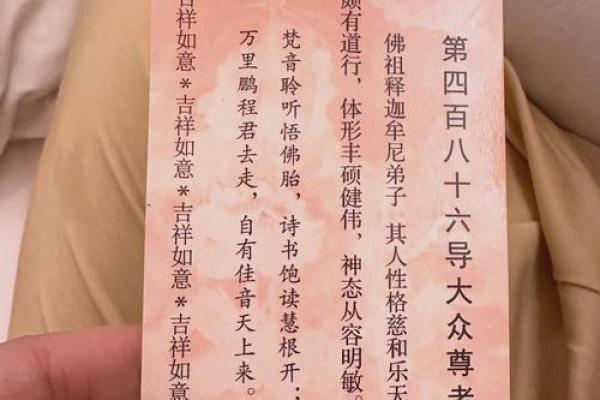 第四百八十六导大众尊者
佛祖释迦牟尼弟子 其人性格慈和乐天
颇有道行，体形丰硕健伟，神态从容明敏。
梵音聆听悟佛胎，诗书饱读慧根开；
万里鹏程君去走，自有佳音天上来。
吉祥如意*吉祥如意*吉祥如意*吉祥如意